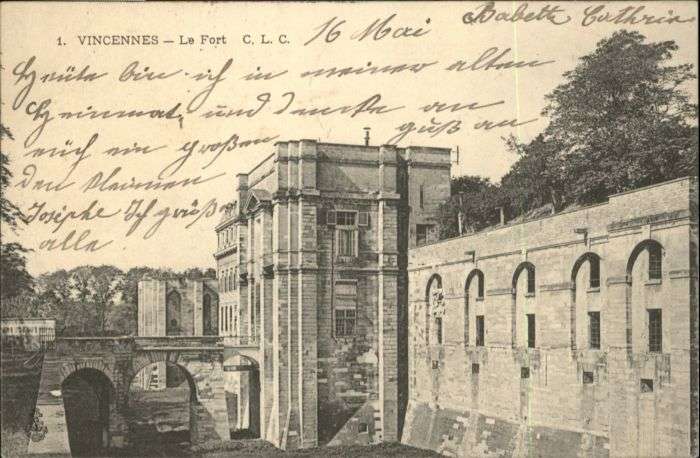 1. VINCENNES — Le Fort C. L. C. 16 Mai Babette Cathrin
Heute bin ich in meiner alten
Heinmat, und dencke an
euch ein großen guß an
den kleinen
Josephe Ich grüß
alle